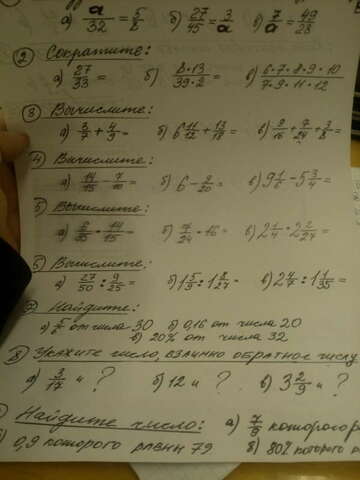 а) a/32 = 5/8 б) 27/45 = 3/a в) 7/a = 49/28
② Сократите:
а) 27/33 = б) 8·13/39·2 = в) 6·7·8·9·10/7·9·11·12
③ Вычислите:
а) 3/7 + 4/3 = б) 6 11/12 + 13/18 = в) 9/16 + 7/24 + 3/8 =
④ Вычислите:
а) 14/15 - 7/10 = б) 6 - 9/20 = в) 9 1/6 - 5 3/4 =
⑤ Вычислите:
а) 6/35 · 14/15 = б) 7/24 · 16 = в) 2 1/4 · 2 2/27 =
Вычислите:
а) 27/50 : 9/25 = б) 1 5/9 : 1 8/27 = в) 2 4/7 : 1 1/35 =
Найдите:
а) 5/6 от числа 30 б) 0,16 от числа 20
в) 20% от числа 32
⑧ Укажите число, взаимно обратное числу
а) 3/17 и ? б) 12 и ? в) 3 2/9 и ?
Найдите число: а) 7/9 которого р
0,9 которого равны 79 в) 80% которого